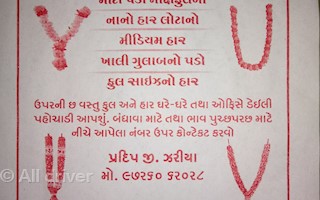 નાનો હાર લોટાનો
મીડિયમ હાર
ખાલી ગુલાબનો પડો
ફુલ સાઇઝનો હાર
ઉપરની છ વસ્તુ ફુલ અને હાર ઘરે-ઘરે તથા ઓફિસે ડેઈલી
પહોચાડી આપશું. બંધાવા માટે તથા ભાવ પુછપરછ માટે
નીચે આપેલા નંબર ઉપર કોન્ટેકટ કરવો
પ્રદિપ જી. ઝરીયા
મો. ૯૭૨૬૦ ૬૨૦૨૮
© All driver